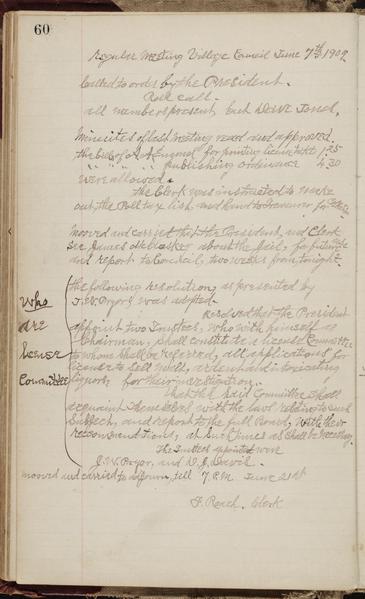 60
Regular Meeting Village Council June 7th 1909
Called to order by the President.
Roll call.
all members present but Dave Jones.
Minutes of last meeting read and approved.
the bill of for printing 1.25
" " " " publishing ordinance 4.30
were allowed.
the Clerk was instructed to make
out the Poll tax list and hand to
Mooved and carried that the President, and Clerk
see James about the Jail, for
and report to Council, two weeks from tonight.
the following resolution, as presented by
J.W. Pryor, was adopted.
Resolved that the President
appoint two Trustees, who with himself as
Chairman, shall constitute a License Committee
to whome shall be referred, all applications for
license to sell malt, ardent and intoxicating
liquors, for their investigation.
that the said Committee shall
acquaint themselves with the laws relative to such
subject, and report to the full Board, with their
recommendations, at such times as shall be necessary.
The Trustees appointed were
J.W. Pryor, and D.J. Davis.
mooved and carried to adjourn, till 7 P.M. June 21st
F. Roach, Clerk
Who
are
License
Committee